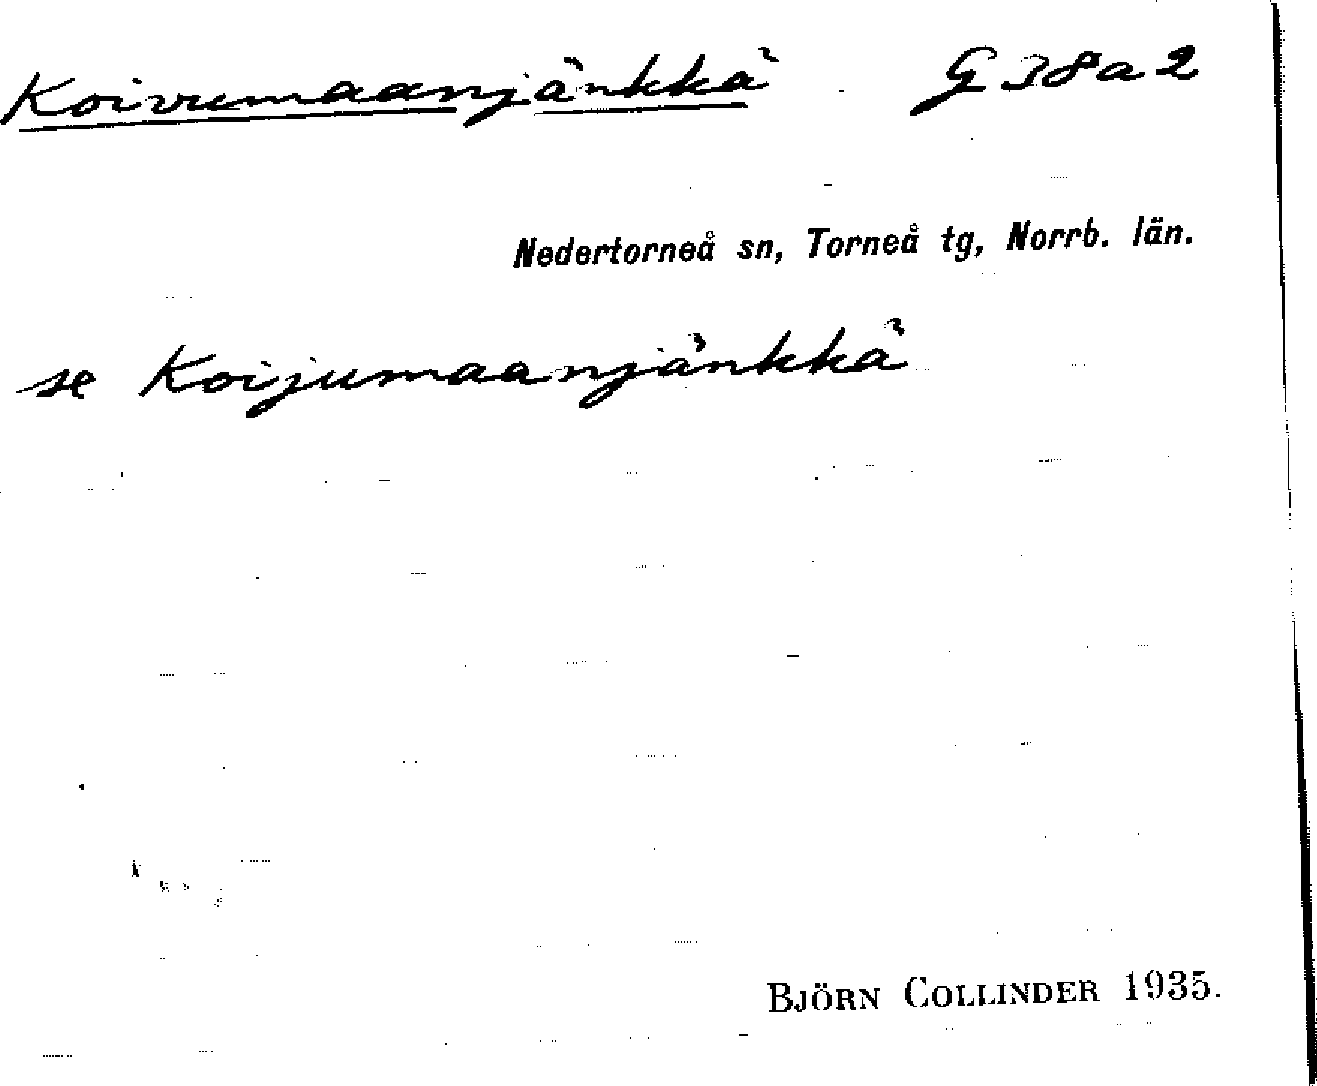 Koivumaanjänkkä G 38 a 2
Nedertorneå sn, Torneå tg, Norrb. län.
se Koijumaanjänkkä
BJÖRN COLLINDER 1935.